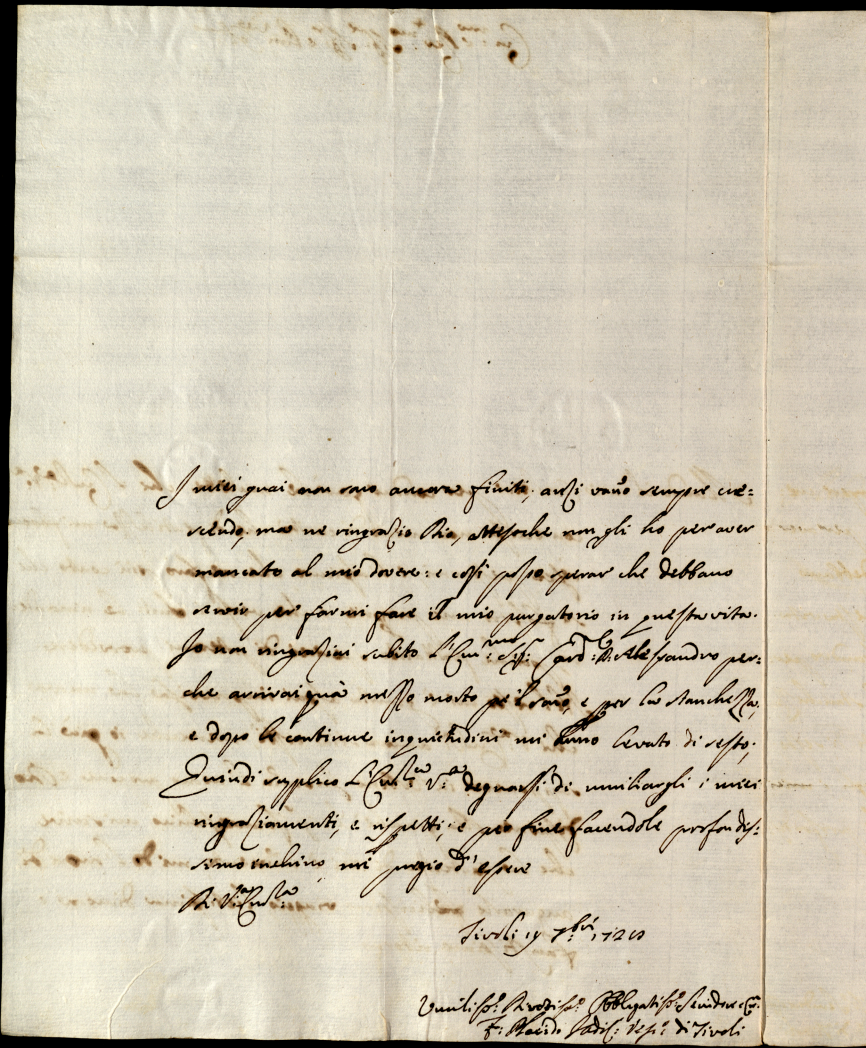 I miei guai non sono ancora finiti, anzi vaño sempre cre=
scendo, ma ne ringrazio Dio, attesoche non gli ho per aver
mancato al mio dovere: e così posso sperar che debbano
servir per farmi fare il mio purgatorio in questa vita.
Io non ringraziai subito L'Em:mo Sig:r Card:le D. Alessandro per=
che arrivai quà mezzo morto pe'l soño, e per la stanchezza,
e dopo le continue inquietudini mi hanno levato di sesto;
Quindi supplico L'Em:za V:a degnarsi di umiliargli i miei
ringraziamenti, e rispetti; e per fine facendole profondis:
simo inchino, mi pregio d'essere
Di V:a Em:za
Tivoli 19 7:bri
Umiliss:o Devotiss:o Obbligatiss:o Servidore
F: Placido Vesc:o di Tivoli